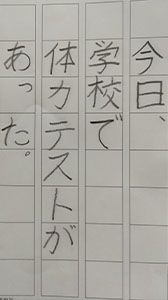 今日、
学校で
体力テストが
あった。